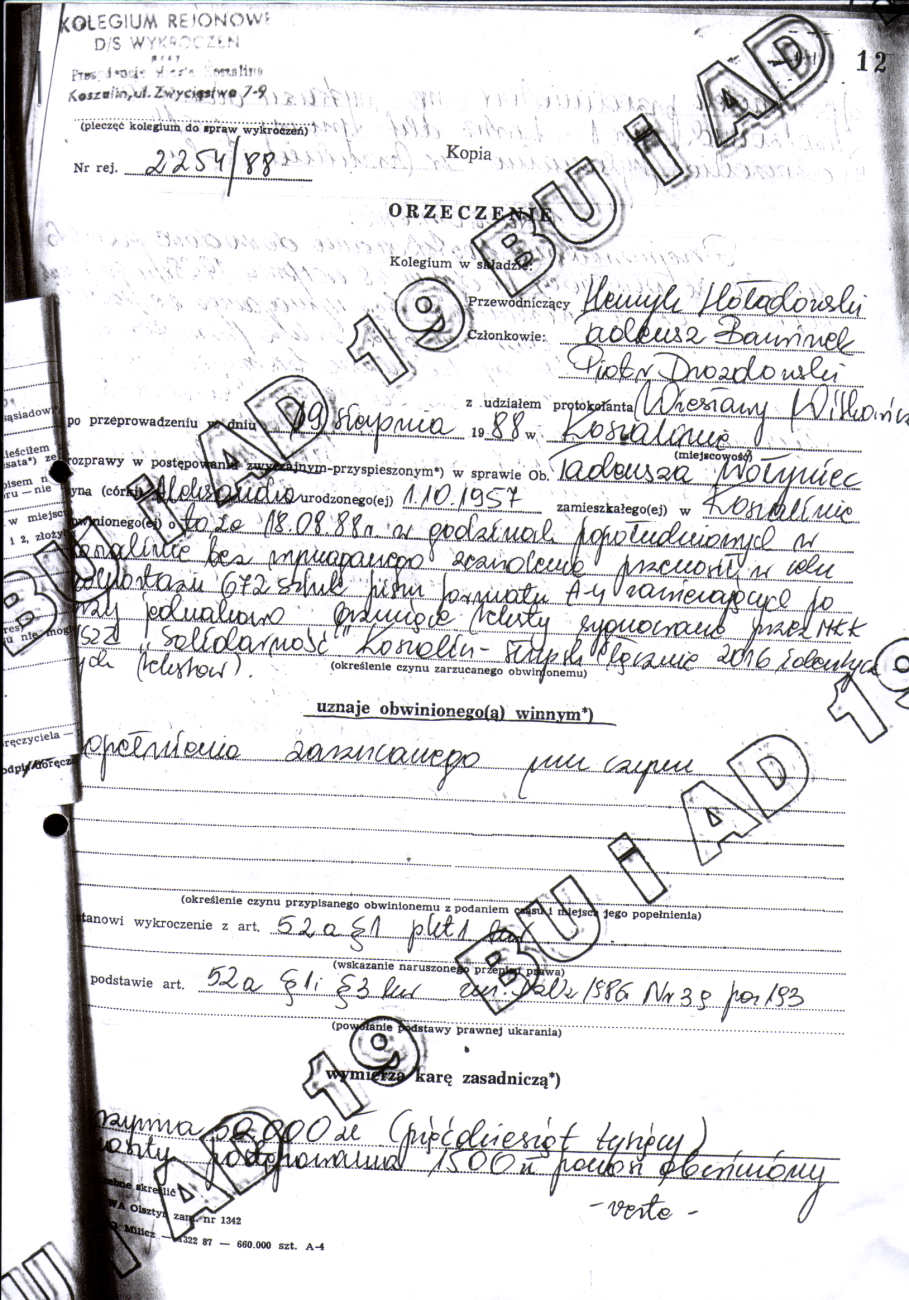 KOLEGIUM REJONOWE
D/S WYKROCZEŃ
przy
Prezydencie Miasta Koszalina
Koszalin, ul. Zwycięstwa 7-9
12
(pieczęć kolegium do spraw wykroczeń)
Kopia
Nr rej. 2254/88
ORZECZENIE
Kolegium w składzie:
Przewodniczący Henryk Hołodowski
Członkowie: Tadeusz
Piotr Drozdowski
z udziałem protokolanta Wiesławy
po przeprowadzeniu w dniu 19 sierpnia 1988 w Koszalinie
(miejscowość)
rozprawy w postępowaniu zwyczajnym-przyspieszonym*) w sprawie Ob. Tadeusza Wołyniec
syna (córki) Aleksandra urodzonego(ej) 1.10.1957 zamieszkałego(ej) w Koszalinie
obwinionego(ej) o to że 18.08.88r. w godzinach popołudniowych w
Koszalinie bez wymaganego zezwolenia przenosił w celu
kolportażu 672 sztuk pism formatu A-4 zawierających po
trzy jednakowo brzmiące teksty sygnowane przez MKK
NSZZ "Solidarność" Koszalin - Słupsk (łącznie 2016 identycz
ych tekstów).
(określenie czynu zarzucanego obwinionemu)
uznaje obwinionego(ą) winnym*)
popełnienia zarzucanego mu czynu
(określenie czynu przypisanego obwinionemu z podaniem czasu i miejsca jego popełnienia)
stanowi wykroczenie z art. 52a §1 pkt 1 kw
(wskazanie naruszonego przepisu prawa)
podstawie art. 52a §1 i §3 kw Dz.U 1986 Nr 39 poz 193
(powołanie podstawy prawnej ukarania)
wymierza karę zasadniczą*)
grzywna 50.000 zł (pięćdziesiąt tysięcy)
koszty postępowania 1500 zł ponosi obwiniony
- verte -
skreślić
Olsztyn zam. nr 1342
Milicz — 1322 87 — 660.000 szt. A-4
BU i AD 19 BU i AD
BU i AD 19 BU i AD 19
BU i AD 19 BU i AD 19